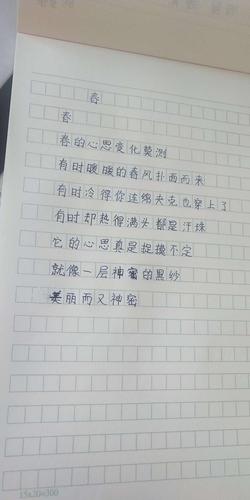 春
春
春的心思变化莫测
有时暖暖的春风扑面而来
有时冷得你连绵大克也穿上了
有时却热得满头都是汗珠
它的心思真是捉摸不定
就像一层神密的黑纱
美丽而又神密
15x20=300